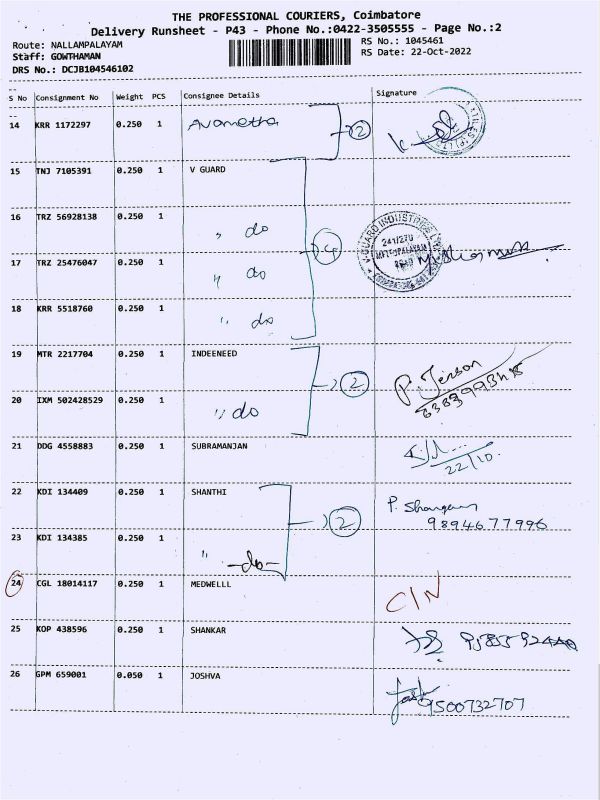 THE PROFESSIONAL COURIERS, Coimbatore
Delivery Runsheet - P43 - Phone No.:0422-3505555 - Page No.:2
Route: NALLAMPALAYAM
Staff: GOWTHAMAN
DRS No.: DCJB104546102
RS No.: 1045461
RS Date: 22-Oct-2022
S No Consignment No Weight PCS Consignee Details Signature
14 KRR 1172297 0.250 1 2
15 TNJ 7105391 0.250 1 V GUARD
16 TRZ 56928138 0.250 1 " do
17 TRZ 25476047 0.250 1 " do
V-GUARD INDUSTRIES
18 KRR 5518760 0.250 1 " do
19 MTR 2217704 0.250 1 INDEENEED 2
20 IXM 502428529 0.250 1 " do
21 DDG 4558883 0.250 1 SUBRAMANJAN
22/10
22 KDI 134409 0.250 1 SHANTHI 2
9894677996
23 KDI 134385 0.250 1 " -do-
24 CGL 18014117 0.250 1 MEDWELLL C/N
25 KOP 438596 0.250 1 SHANKAR
26 GPM 659001 0.050 1 JOSHVA
9500732707